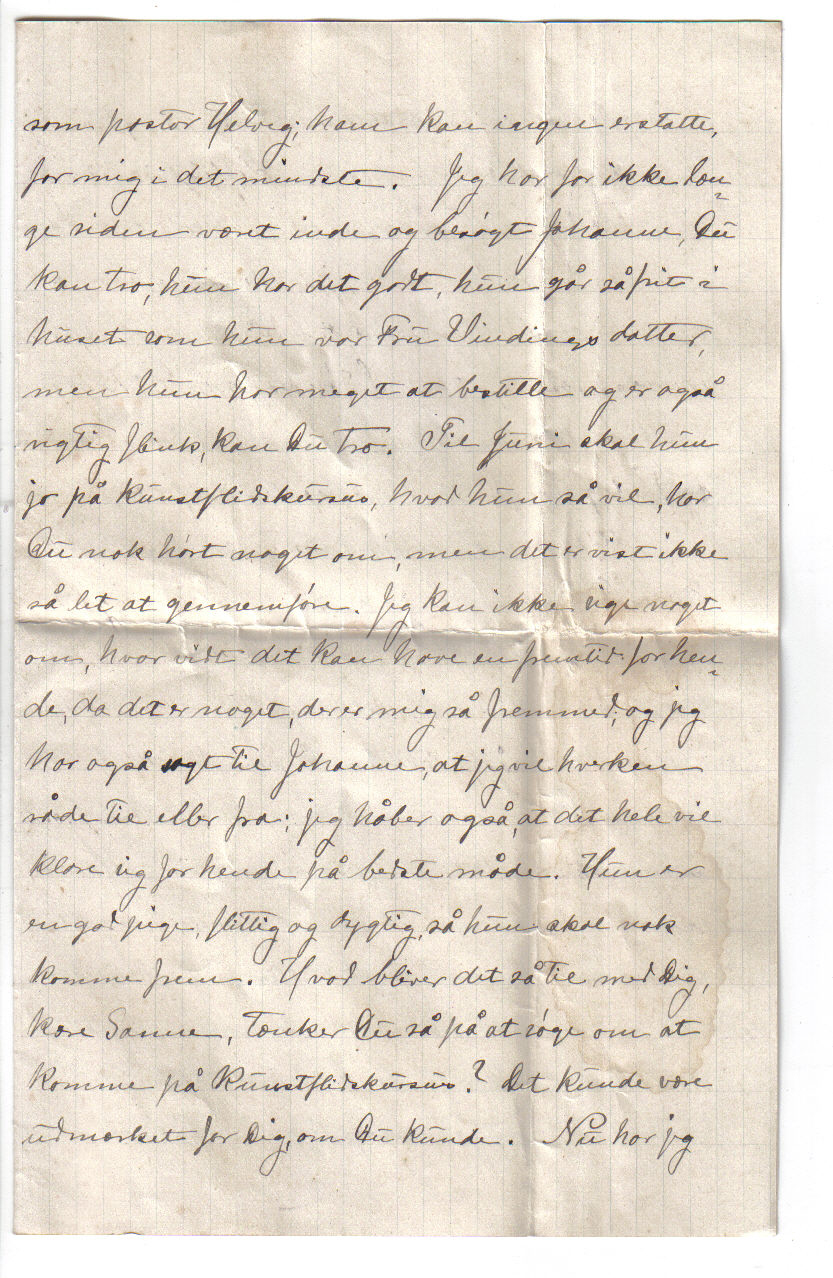 som pastor Helveg; ham kan ingen erstatte,
for mig i det mindste. Jeg har for ikke læn-
ge siden været inde og besøgt Johanne, Du
kan tro, hun har det godt, hun går så frit i
huset som hun var Fru Vindings datter,
men hun har meget at bestille og er også
rigtig flink, kan Du tro. Til Juni skal hun
jo på Kunstflidskursus, hvad hun så vil, har
Du nok hørt noget om, men det er vist ikke
så let at gennemføre. Jeg kan ikke sige noget
om, hvor vidt det kan have en fremtid for hen-
de, da det er noget, der er mig så fremmed; og jeg
har også sagt til Johanne, at jeg vil hverken
råde til eller fra; jeg håber også, at det hele vil
klare sig for hende på bedste måde. Hun er
en god pige, flittig og dygtig, så hun skal nok
komme frem. Hvad bliver det så til med Dig,
kære Sanne, tænker Du så på at søge om at
komme på Kunstflidskursus? Det kunde være
udmærket for Dig, om Du kunde. Nu har jeg